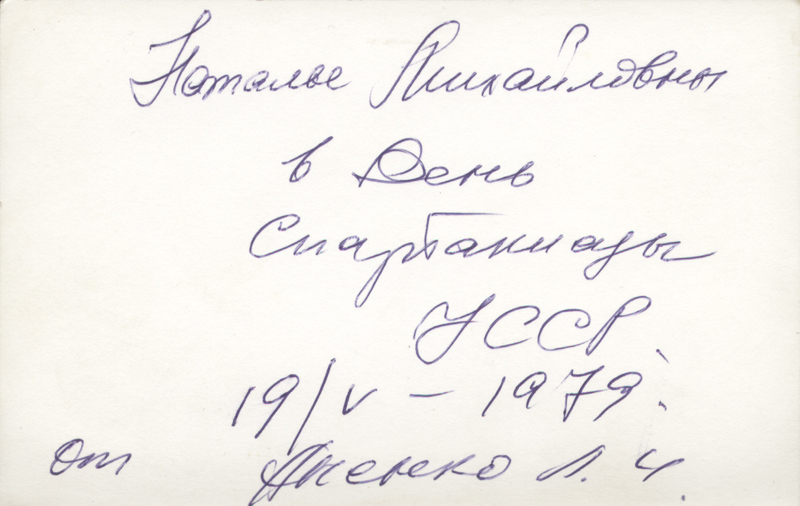 Наталье Михайловны
в День
Спартакиады
УССР.
19/V – 1979.
от Л. И.